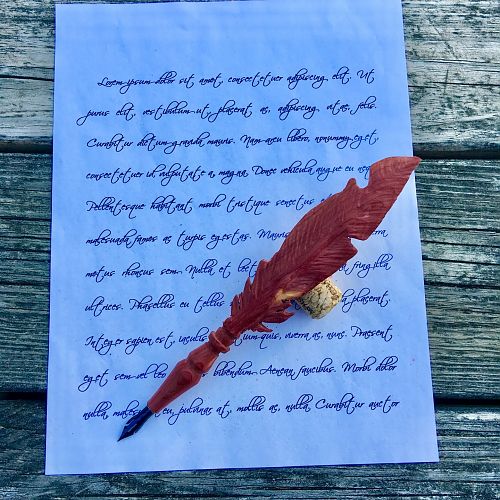 Lorem ipsum dolor sit amet, consectetuer adipiscing elit. Ut
purus elit, vestibulum ut, placerat ac, adipiscing vitae, felis.
Curabitur dictum gravida mauris. Nam arcu libero, nonummy eget,
consectetuer id, vulputate a, magna. Donec vehicula augue eu
Pellentesque habitant morbi tristique senectus
malesuada fames ac turpis egestas. Mauris
metus rhoncus sem. Nulla et fringilla
ultrices. Phasellus eu tellus placerat.
Integer sapien est, iaculis quis, viverra ac, nunc. Praesent
eget sem vel leo bibendum. Aenean faucibus. Morbi dolor
nulla, eu, pulvinar at, mollis ac, nulla. Curabitur auctor